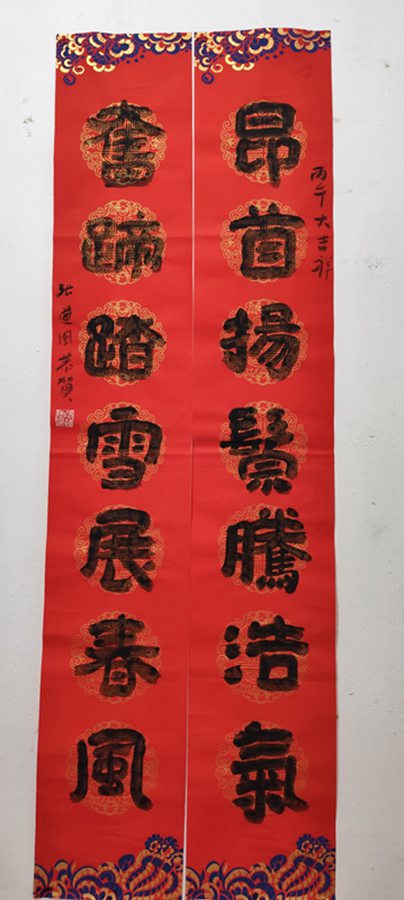 昂首揚鬃騰浩氣
丙午大吉祥
奮蹄踏雪展春風
張道國恭賀